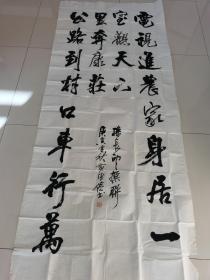 電視進農家身居一
室觀天下
公路到村口車行萬
里奔康莊
撰聯
庚寅
書